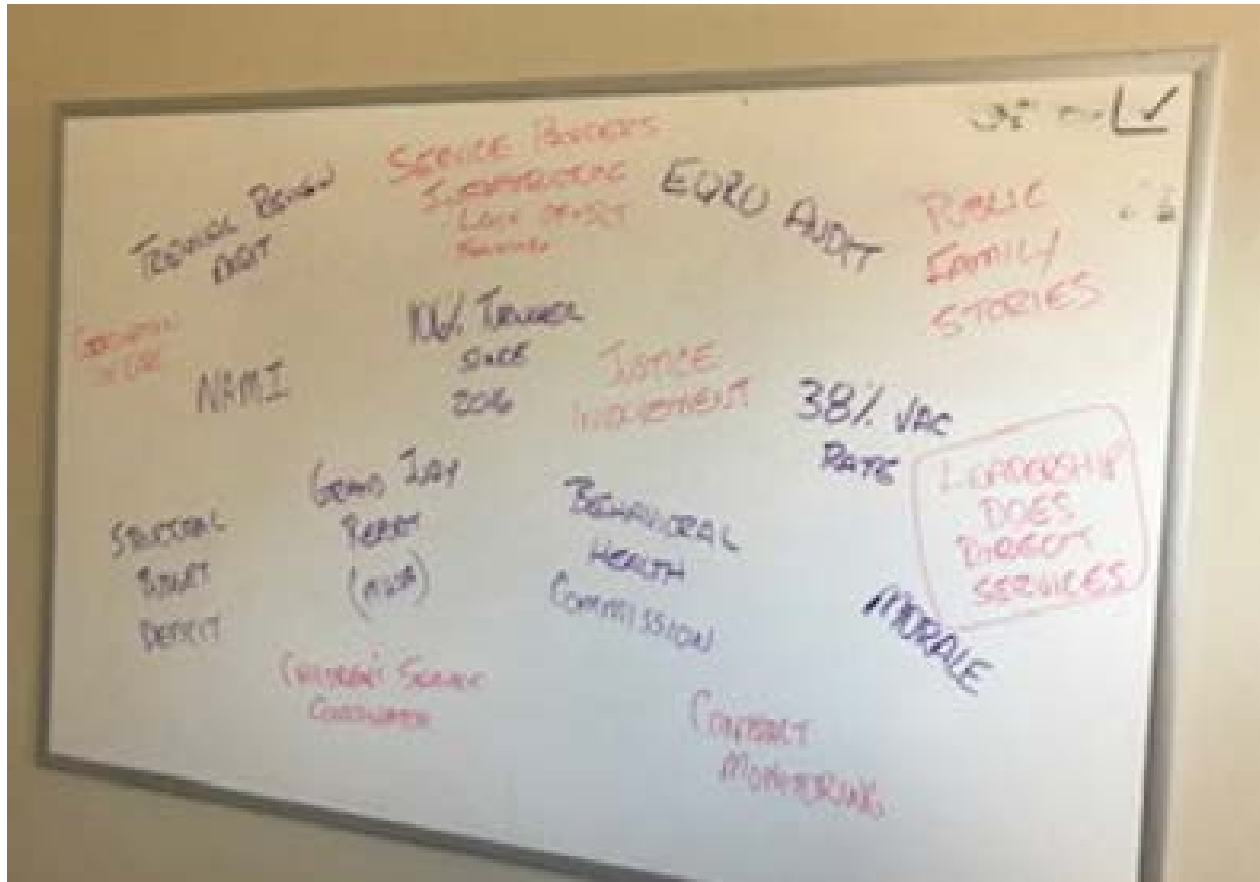 TRIENNIAL REVIEW
AUDIT
SERVICE PROVIDERS
INFRASTRUCTURE
LACK OF
EQRO AUDIT
PUBLIC
FAMILY
STORIES
NAMI
106% TURNOVER
SINCE
2016
JUSTICE
INVOLVEMENT
38% VAC
RATE
LEADERSHIP
DOES
DIRECT
SERVICES
STRUCTURAL
BUDGET
DEFICIT
GRAND JURY
REPORT
BEHAVIORAL
HEALTH
COMMISSION
MORALE
CHILDREN'S SERVICE
COORDINATION
CONTRACT
MONITORING